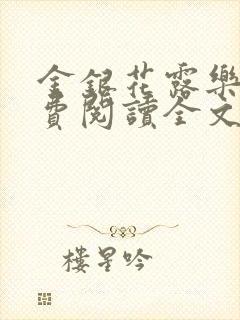 金銀花露樂
費閱讀全文
樓星吟